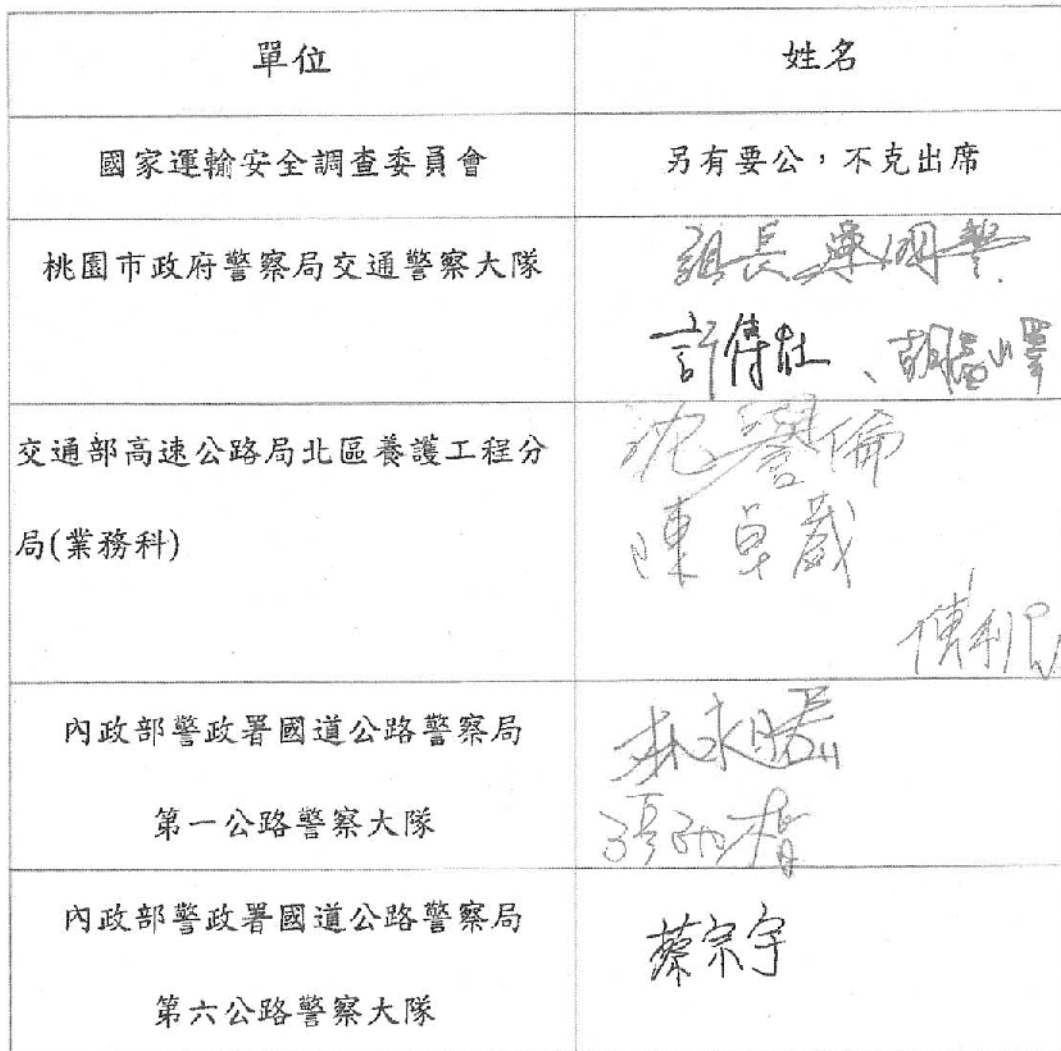 單位
姓名
國家運輸安全調查委員會
另有要公，不克出席
桃園市政府警察局交通警察大隊
組長
許
交通部高速公路局北區養護工程分
局(業務科)
沈譽倫
陳卓葳
內政部警政署國道公路警察局
第一公路警察大隊
林永
張
內政部警政署國道公路警察局
第六公路警察大隊
蔡宗宇